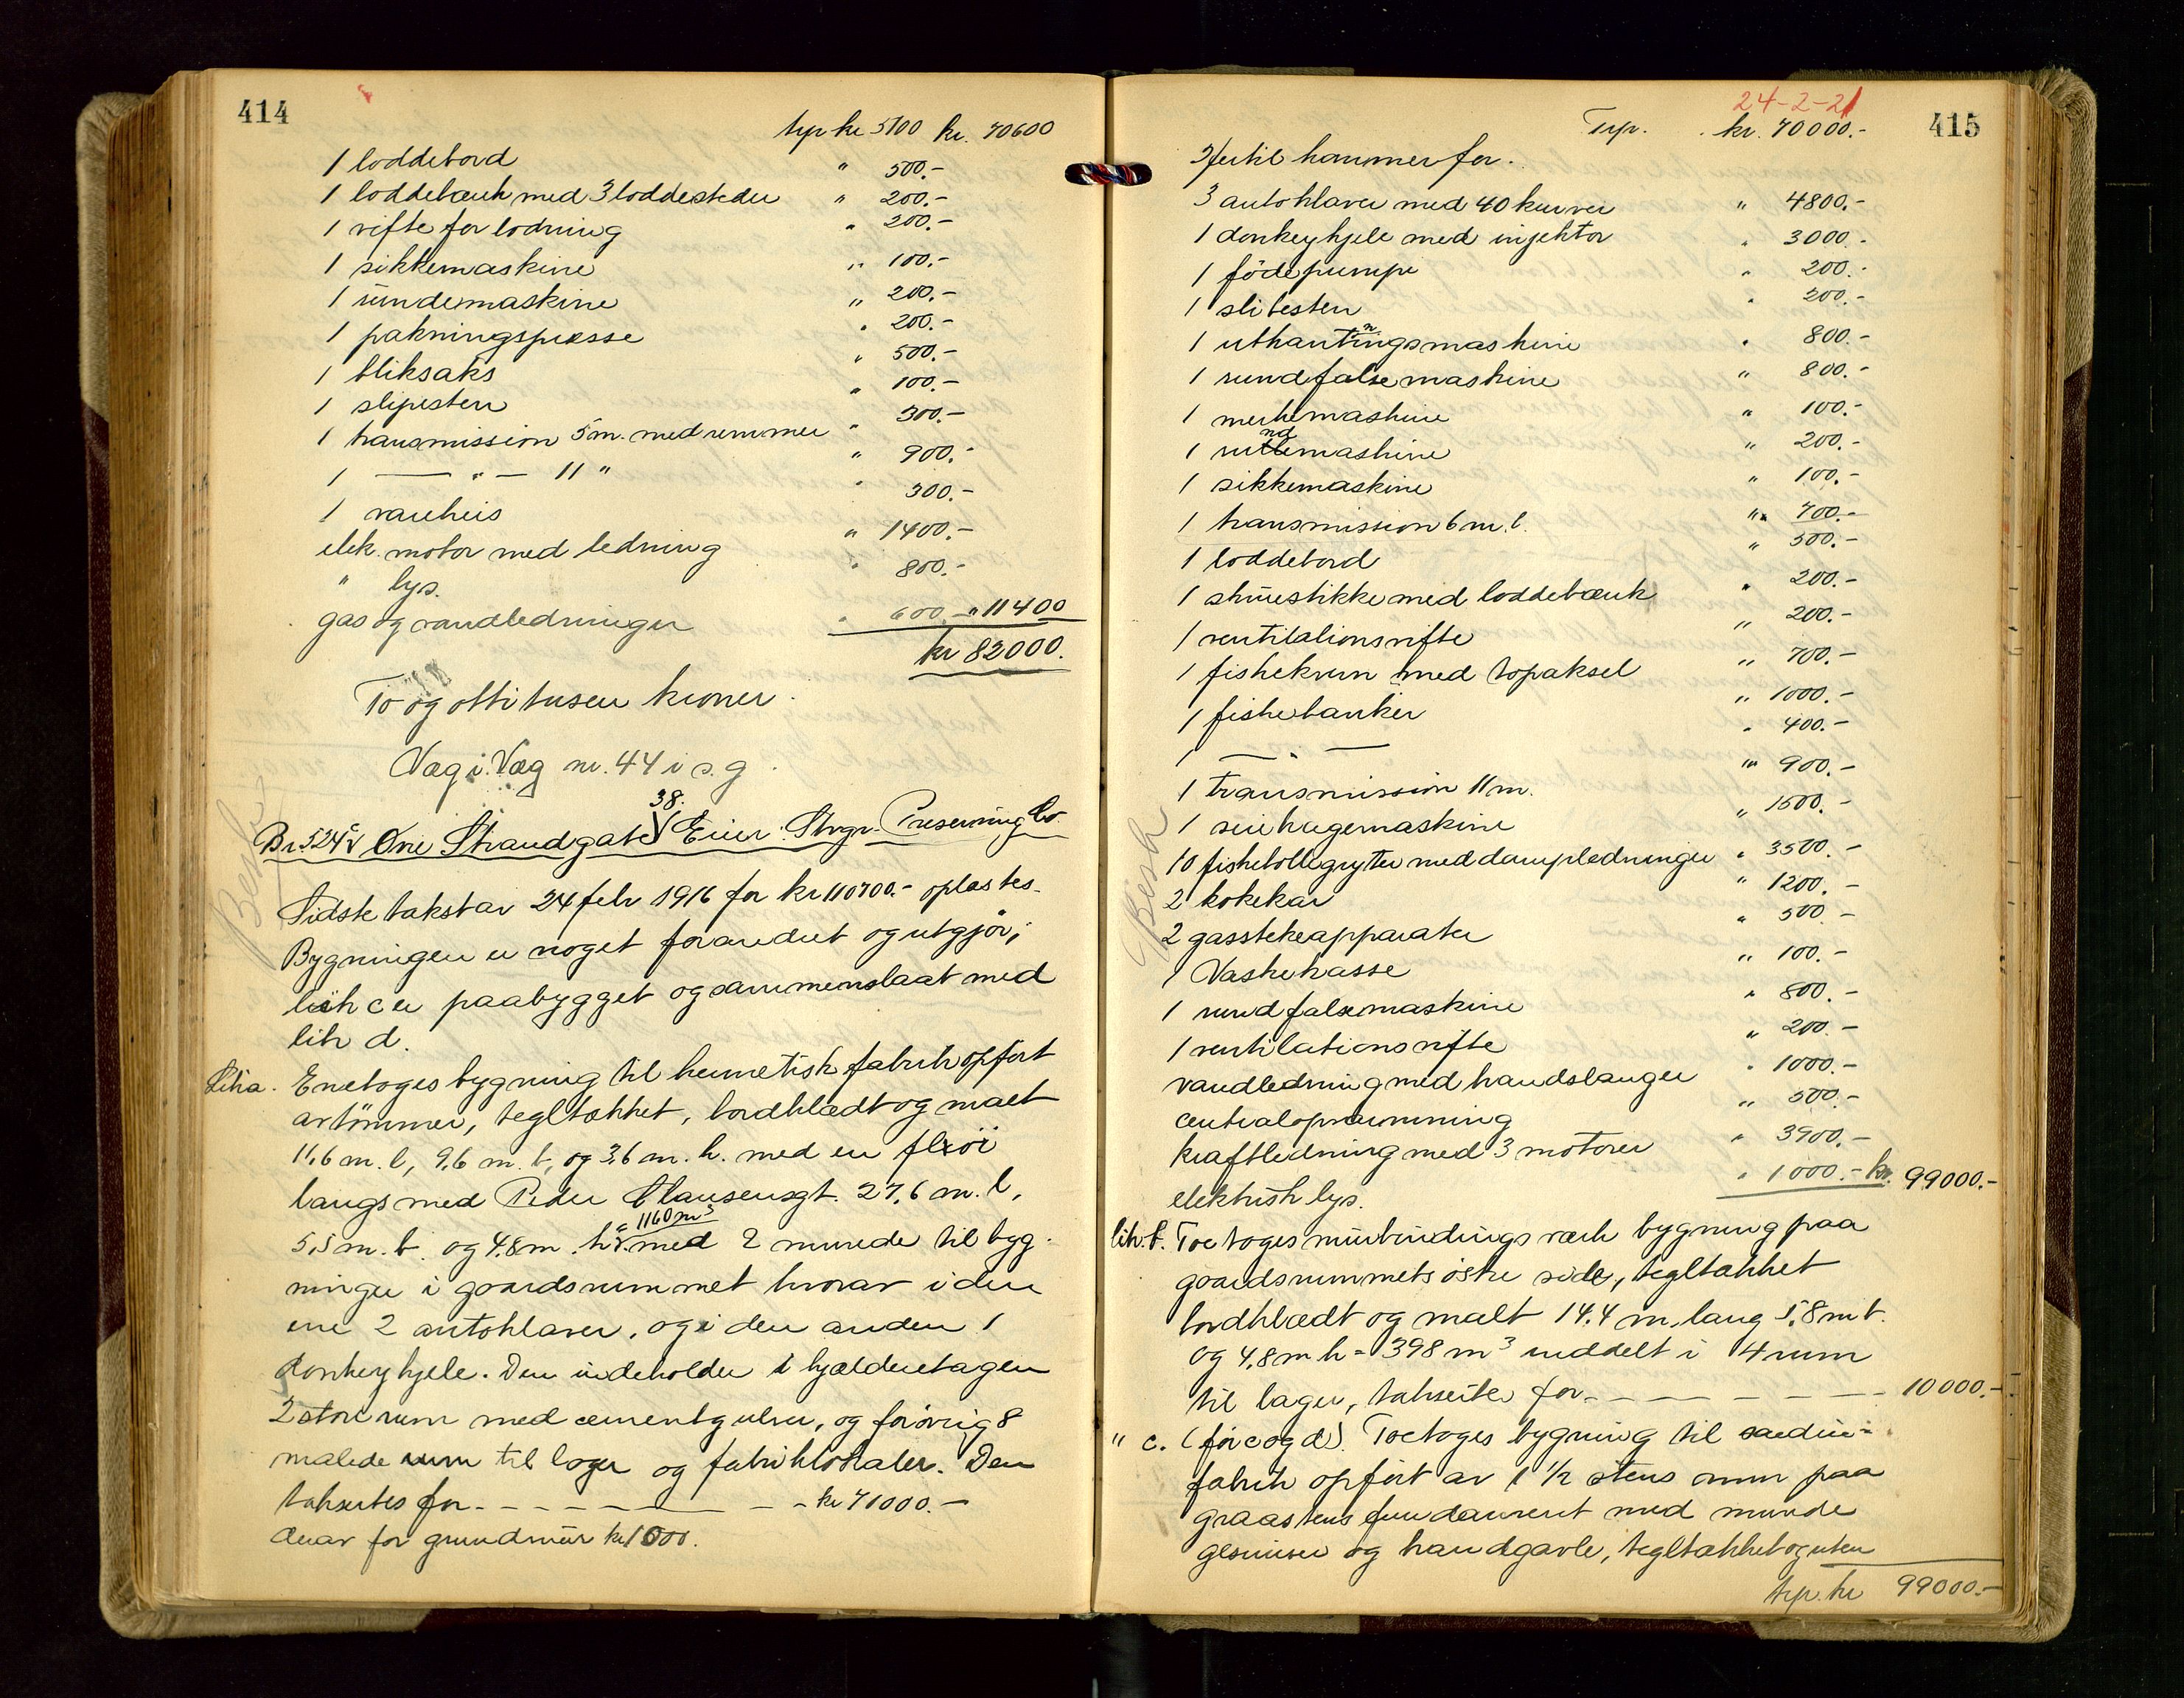 414
trp kr 5100 kr. 70600
1 loddebord " 500.-
1 loddebænk med 3 loddesteder " 200.-
1 vifte for lodning " 200.-
1 sikkemaskine " 100.-
1 rundemaskine " 200.-
1 pakningspresse " 200.-
1 bliksaks " 500.-
1 slipesten " 100.-
1 transmission 5 m. med remmer " 300.-
1 — " — 11 " " 900.-
1 vareheis " 300.-
elek. motor med ledning " 1400.-
" lys. " 800.-
gas og vandledninger " 600.- " 11400
kr 82000.
To og otti tusen kroner.
Væg i Væg nr. 44 i s. g.
Besk.
Br. 524c Øvre Strandgate 38. Eier: Stvgr. Preserving Co
Sidste takst av 24 febr 1916 for kr 110700.- oplæstes.
Bygningen er noget forandret og utgjør;
litr c er paabygget og sammenslaat med
litr d.
Litr a. Enetages bygning til hermetisk fabrik opført
av tømmer, tegltækket, bordklædt og malt
11,6 m. l, 9,6 m. b, og 3,6 m. h. med en fløi
langs med Peder Clausensgt. 27,6 m. l,
5,5 m. b. og 4,8 m. h. = 1160 m³ med 2 murede til byg-
ninger i gaardsrummet hvorav i den
ene 2 autoklaver, og i den anden 1
donkeykjele. Den indeholder i kjælderetagen
2 store rum med cementgulver, og forøvrig 8
malede rum til lager og fabriklokaler. Den
takseres for - - - - - kr 71000.-
derav for grundmur kr 1000.
24-2-21
415
Trp. kr. 70000.-
Hertil kommer for.
3 autoklaver med 40 kurver " 4800.-
1 donkeykjele med injektor " 3000.-
1 fødepumpe " 200.-
1 slibesten " 200.-
1 utkantningsmaskine " 800.-
1 rundfalsemaskine " 800.-
1 merkemaskine " 100.-
1 rundemaskine " 200.-
1 sikkemaskine " 100.-
1 transmission 6 m. l. " 700.-
1 loddebord " 500.-
1 skruestikke med loddebænk " 200.-
1 ventilationsvifte " 200.-
1 fiskekvern med topaksel " 700.-
1 fiskebanker " 1000.-
1 — " — " 400.-
1 transmission 11 m. " 900.-
1 seiehagemaskine " 1500.-
10 fiskebollegryter med dampledninger " 3500.-
2 kokekar " 1200.-
2 gasstekeapparater " 500.-
1 Vaskekasse " 100.-
Besk.
1 rundfalsemaskine " 800.-
1 ventilationsvifte " 200.-
vandledning med handslanger " 1000.-
centralopvarmning " 500.-
kraftledning med 3 motorer " 3900.-
elektrisk lys. " 1000.- kr. 99000.-
litr. b. Toetages murbindingsverk bygning paa
gaardsrummets østre side, tegltækket
bordklædt og malt 14,4 m. lang 5,8 m b.
og 4,8 m h = 398 m³ inddelt i 4 rum
til lager, takseres for - - - - - 10000.-
" c. (før c og d). Toetages bygning til sardin-
fabrik opført av 1 1/2 stens mur paa
graastens fundament med murede
gesimser og brandgavle, tegltækket og uten
trp. kr 99000.-